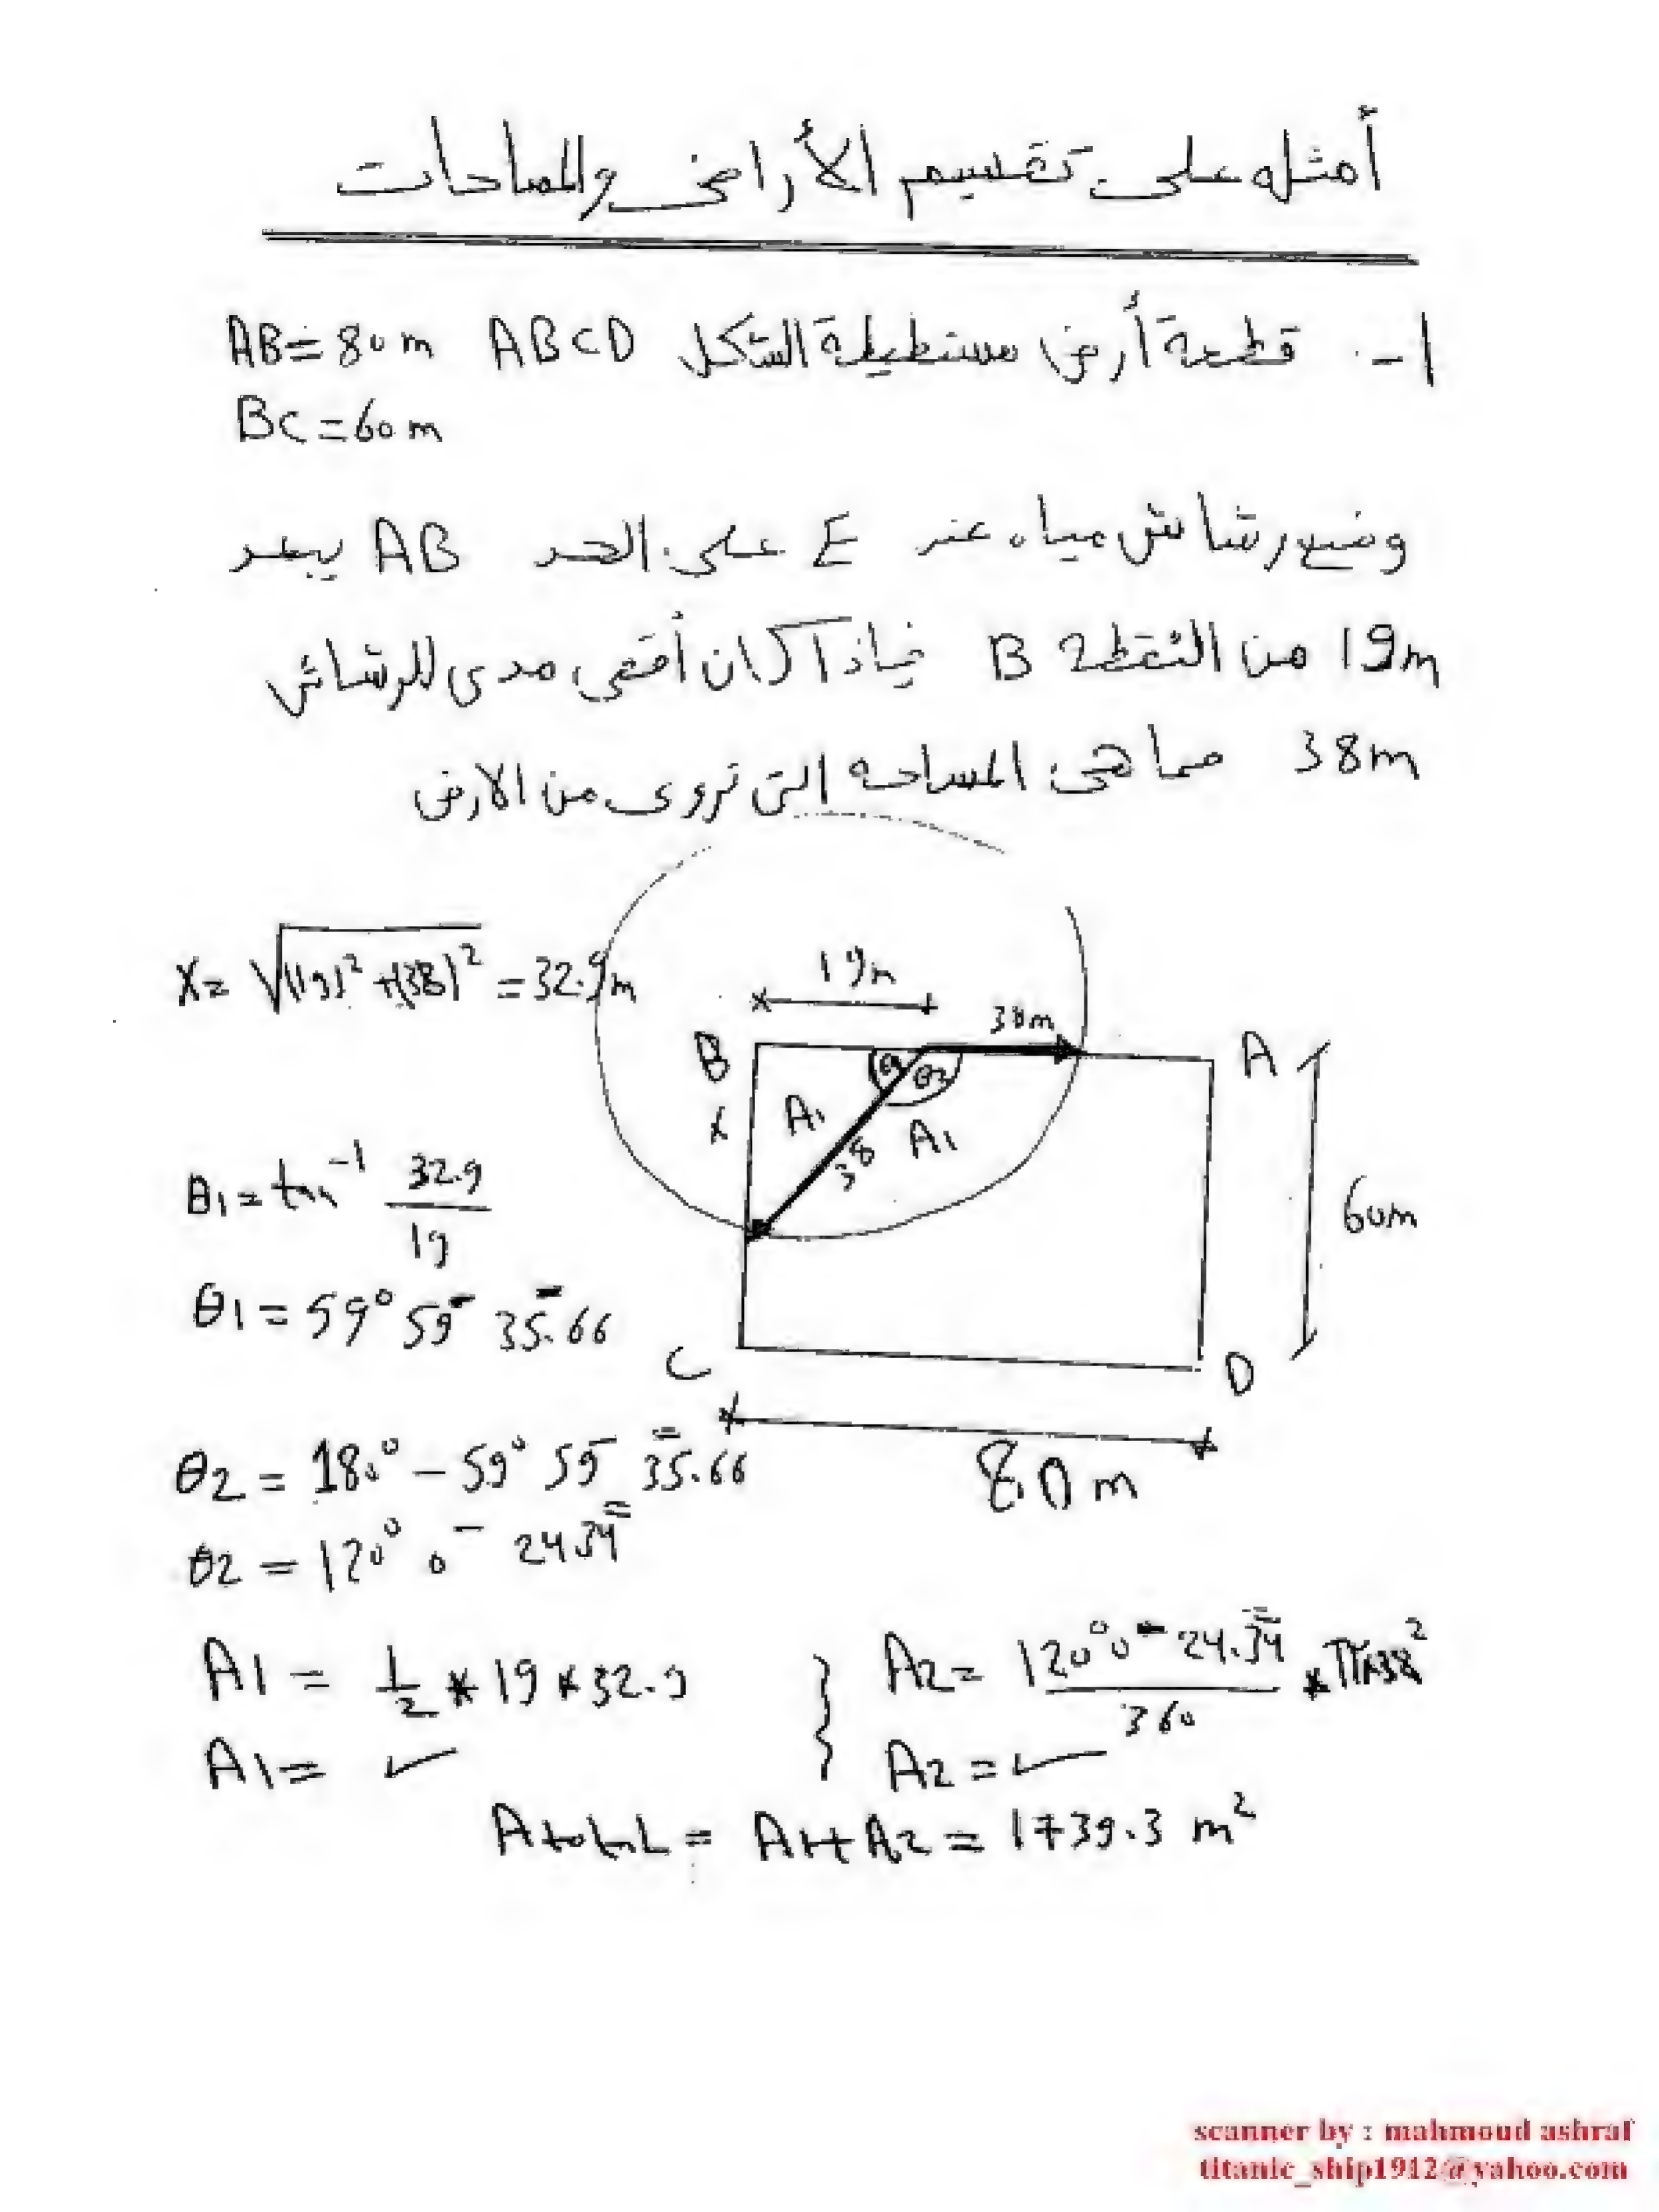 أمثله على تقسيم الأراضى والمساحات
١- قطعة أرض مستطيلة الشكل ABCD AB=80m
BC=60m
وضع رشاش مياه عند E على الحد AB يبعد
19m من النقطة B فإذا كان أقصى مدى للرشاش
38m فما هى المساحه التى تروى من الارض
X= √(19)² +(38)² = 32.9m
19m
38m
B
A
X
A1
θ1
θ2
38
A1
60m
C
D
80m
θ1= tan⁻¹ 32.9/19
θ1= 59° 59' 35.66"
θ2 = 180° - 59° 59' 35.66"
θ2 = 120° 0' 24.34"
A1 = 1/2 * 19 * 32.9
A1= ✓
A2= 120° 0' 24.34"/360 * π*38²
A2= ✓
Atotal = A1+A2 = 1739.3 m²
scanner by : mahmoud ashraf
titanic_ship1912@yahoo.com